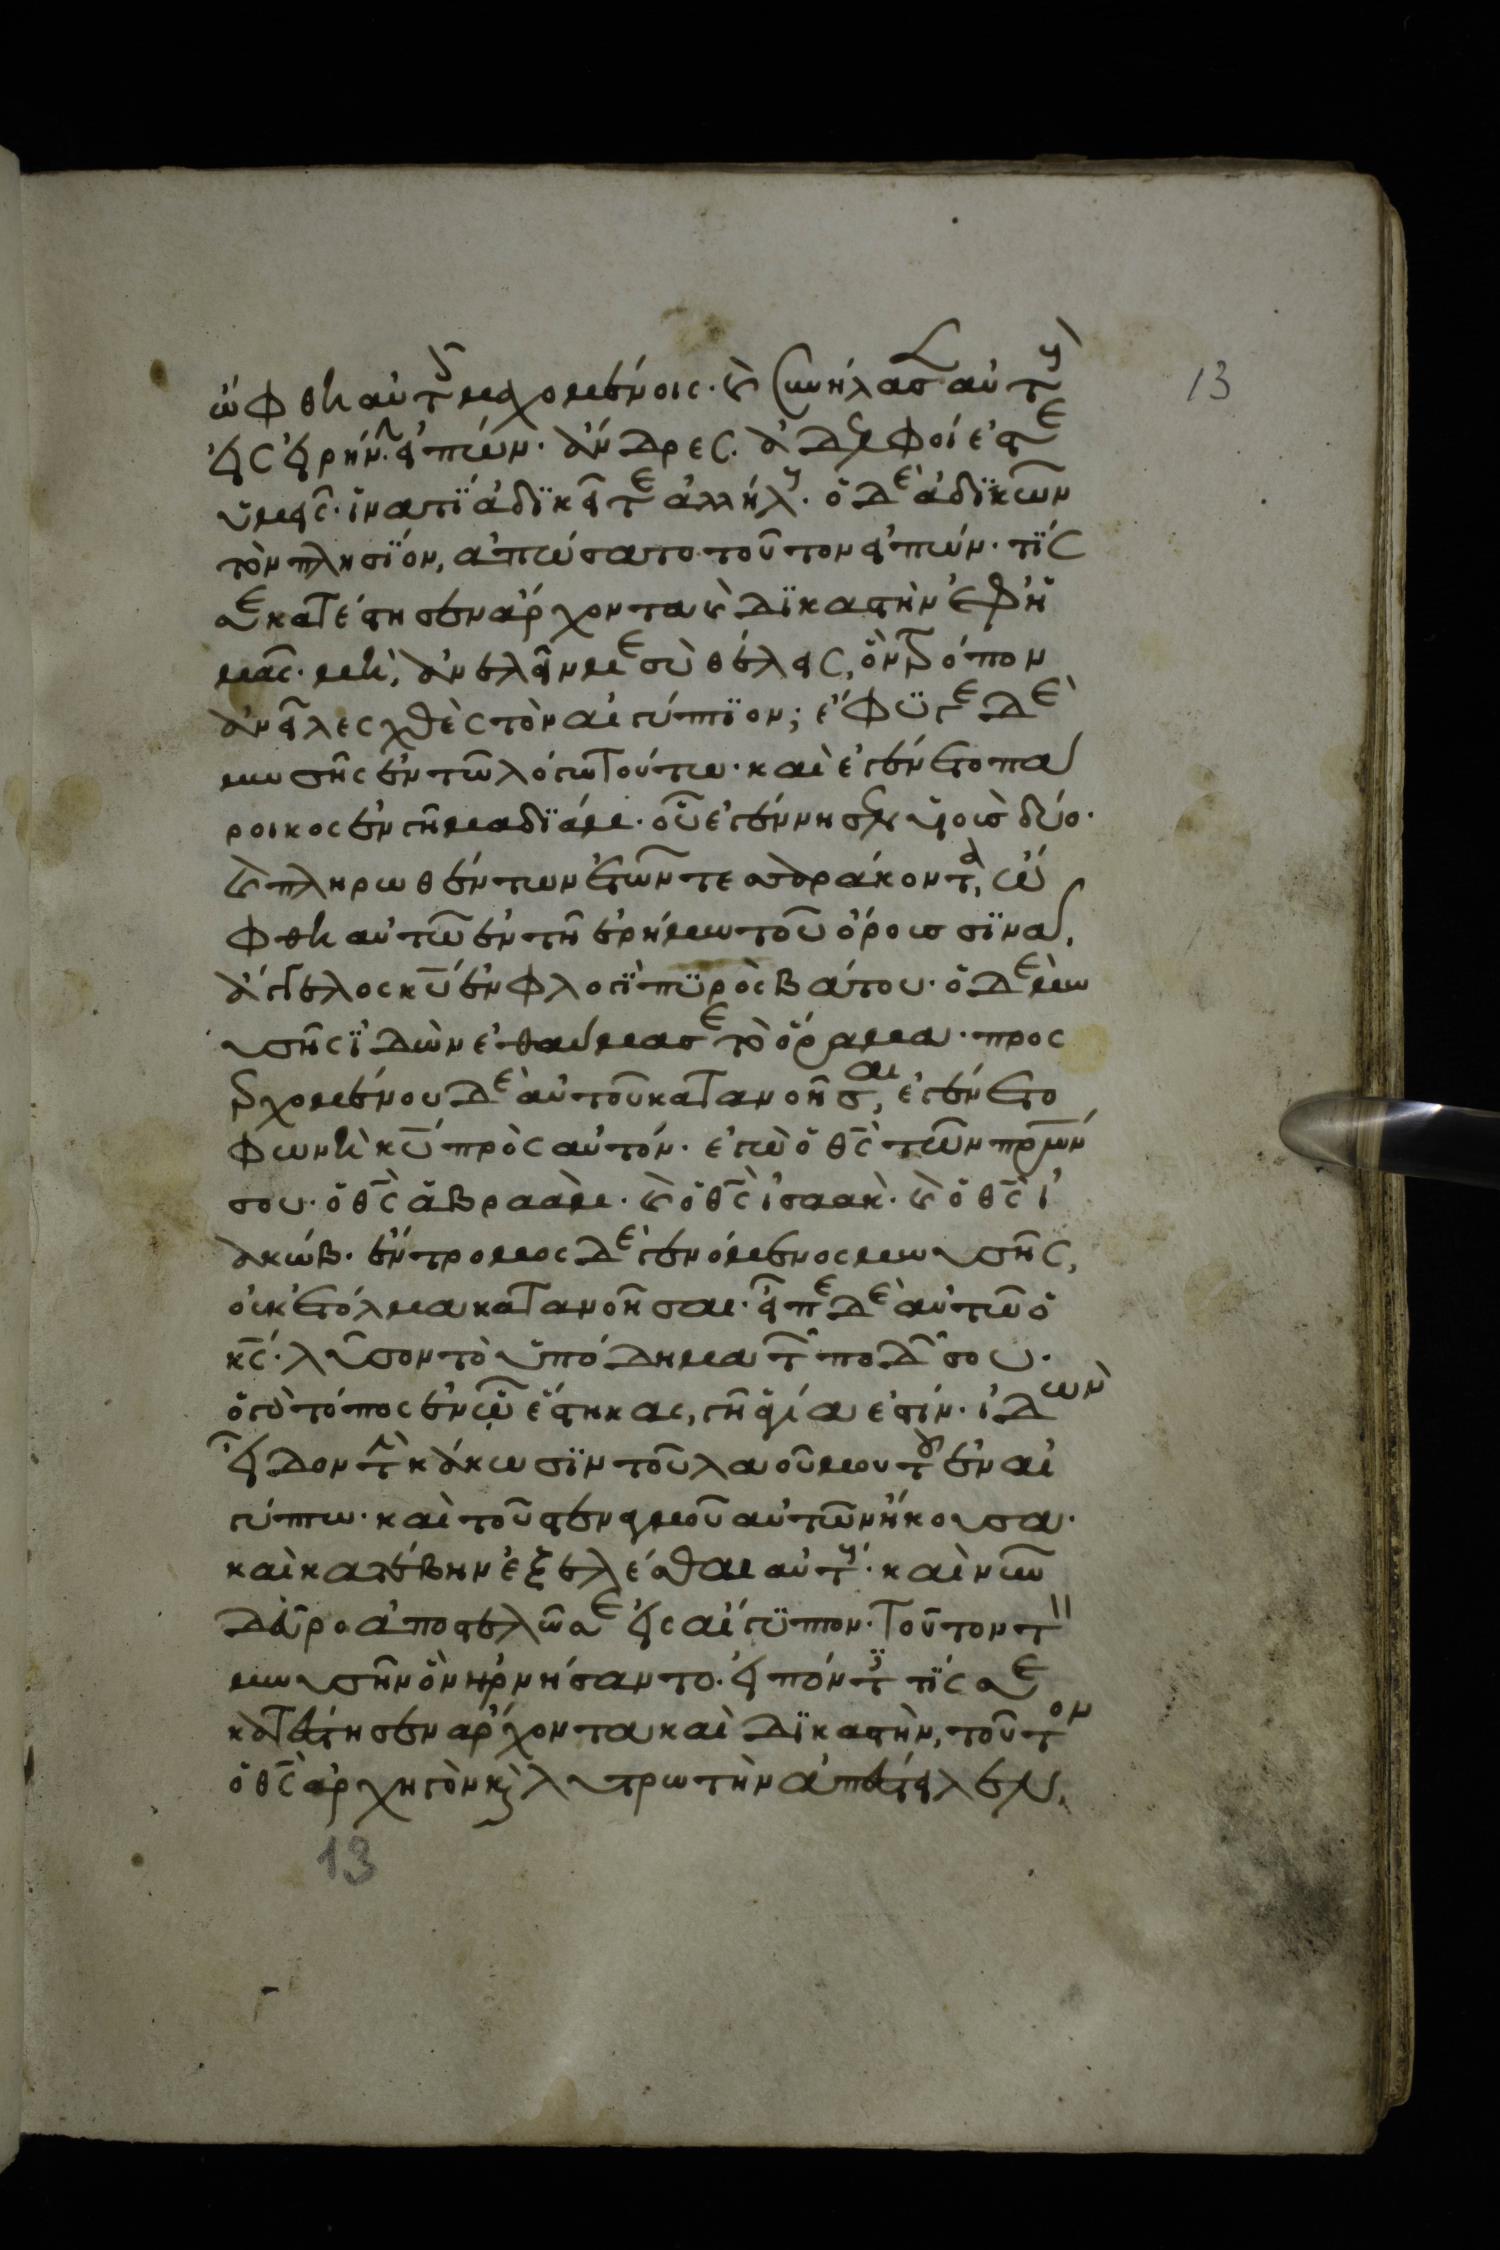 ὤφθη αὐτοῖς μαχομένοις· καὶ συνήλασεν αὐτοὺς
13
εἰς εἰρήνην εἰπών· ἄνδρες ἀδελφοί ἐστε
ὑμεῖς· ἵνα τί ἀδϊκεῖτε ἀλλήλους· ὁ δὲ ἀδϊκῶν
τὸν πλησίον, ἀπώσατο τοῦτον εἰπών· τίς
σε κατέστησεν ἄρχοντα καὶ δϊκαστὴν ἐφ ἡ
μᾶς· μὴ, ἀνελεῖν με σὺ θέλεις, ὃν τρόπον
ἀνεῖλες χθὲς τὸν αἰγύπτϊον; ἔφϋγε δὲ
μωσῆς ἐν τῶ λόγω τούτω· καὶ ἐγένετο πά
ροικος ἐν γῆ μαδϊάμ· οὗ ἐγέννησεν υἱοὺς δύο·
καὶ πληρωθέντων ἐτῶν τεσσαράκοντα, ὤ
φθη αὐτῶ ἐν τῆ ἐρήμω τοῦ ὄρους σϊνᾶ,
ἄγγελος κυ ἐν φλογῒ πϋρὸς βάτου· ὁ δὲ μω
υσῆς ἰδὼν ἐθαύμασε τὸ ὅραμα· προσ
ερχομένου δὲ αὐτοῦ κατανοῆσαι, ἐγένετο
φωνὴ κυ πρὸς αὐτόν· ἐγὼ ὁ θς τῶν πρων
σου· ὁ θς ἀβραάμ· καὶ ὁ θς ἰσαὰκ· καὶ ὁ θς ἰ
ακώβ· ἔντρομος δὲ γενόμενος μωυσῆς,
οὐκ ἐτόλμα κατανοῆσαι· εἶπε δὲ αὐτῶ ὁ
κς· λῦσον τὸ ὑπόδημα τῶν ποδῶν σου·
ὁ γὰρ τόπος ἐν ᾧ ἕστηκας, γῆ ἁγία ἐστίν· ἰδὼν
εἶδον τὴν κάκωσϊν τοῦ λαοῦ μου τοῦ ἐν αἰ
γύπτω· καὶ τοῦ στεναγμοῦ αὐτῶν ἤκουσα·
καὶ κατέβην ἐξελέσθαι αὐτούς· καὶ νῦν
δεῦρο ἀποστελῶ σε εἰς αἴγϋπτον· τοῦτον τὸν
μωυσῆν ὃν ἠρνήσαντο· εἰπόντες τίς σε
κατέστησεν ἄρχοντα καὶ δϊκαστὴν, τοῦτον
ὁ θς ἀρχηγὸν καὶ λυτρωτὴν ἀπέστειλεν,
13